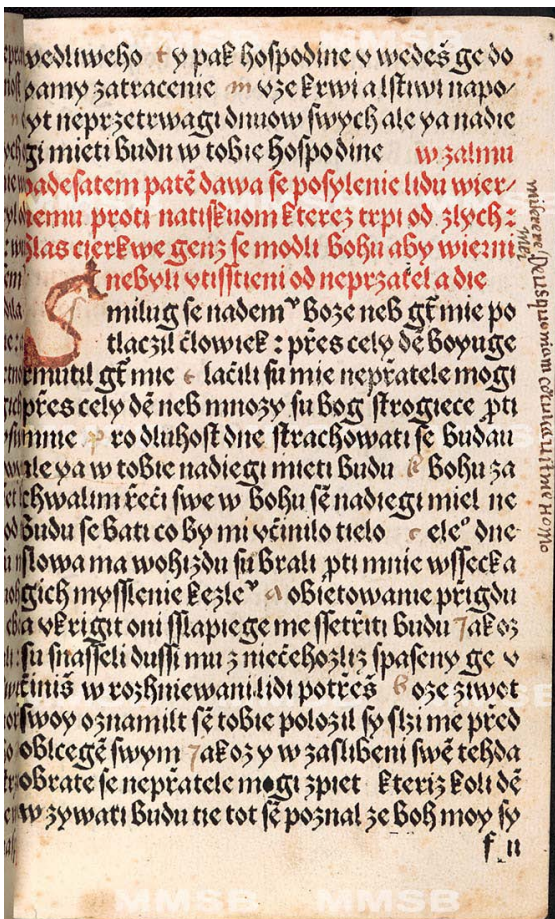 vedliweho t y pak hospodine v wedeš ge do
gamy zatracenie m vze krwi a lstiwi napo/
yt neprzetrwagi dnuow swych ale ya nadie
gi mieti budu w tobie hospodine w zalmu
padesatem patē dawa se posylenie lidu wier/
nemu proti natiskuom kterez trpi od zlych :
hlas cierkwe genz se modli bohu aby wierni
nebyli vtisstieni od neprzatel a die
S milug se nademͮ boze neb gt̄ mie po
tlaczil człowiek : přes cely dē boyuge
rmutil gt̄ mie t lačili su mie nepřatele mogi
přes cely dē neb mnozy su bog strogiece pti
mnie p ro dluhost dne strachowati se budau
ale ya w tobie nadiegi mieti budu k bohu za
chwalim řeči swe w bohu sē nadiegi miel ne
budu se bati co by mi včinilo tielo c eleͦ dne
slowa ma wohizdu su brali pti mnie wssecka
gich mysslenie kezleͮ a obietowanie přigdu
a vkrigit oni sslapiege me ssetřiti budu Jakoz
su snasseli dussi mu z niečehozliz spaseny ge v
činiš w rozhniewani lidi potřeš b oze ziwot
swoy oznamilt sē tobie polozil sy slzi me před
oblcegē swym Jakoz y w zaslibeni swē tehda
obrate se nepřatele mogi zpiet kteriz koli dē
w zywati budu tie tot sē poznal ze boh moy sy
f ii
miserere mei Deus quoniam cōculcauit me Homo
MMSB MMSB